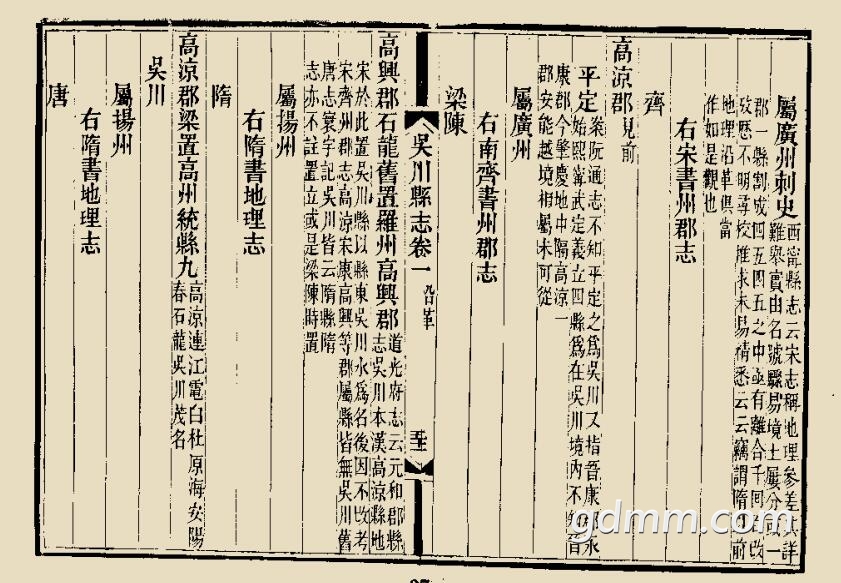 屬廣州刺史 西寧縣志云宋志稱地理參差其詳
難舉實由名號驟易境土屢分或一
郡一縣割成四五四五之中亟有離合千回百改
攷歷不明尋校推求未易精悉云云竊謂隋以前
地理沿革俱當
作如是觀也
右宋書州郡志
齊
高涼郡 見前
平定 案阮通志不知平定之為吳川又指晉康郡永
始熙寧武定義立四縣為在吳川境內不知晉
康郡今肇慶地中隔高涼一
郡安能越境相屬未可從
屬廣州
右南齊書州郡志
梁陳
吳川縣志卷一 沿革
高興郡石龍舊置羅州高興郡 道光府志云元和郡縣
志吳川本漢高涼縣地
宋於此置吳川縣以縣東吳川水為名後因不改考
宋齊州郡志高涼宋康高興等郡屬縣皆無吳川舊
唐志寰宇記吳川皆云隋縣隋
志亦不註置立或是梁陳時置
屬揚州
右隋書地理志
隋
高涼郡梁置高州統縣九 高涼連江電白杜原海安陽
春石龍吳川茂名
吳川
屬揚州
右隋書地理志
唐
gdmm.com